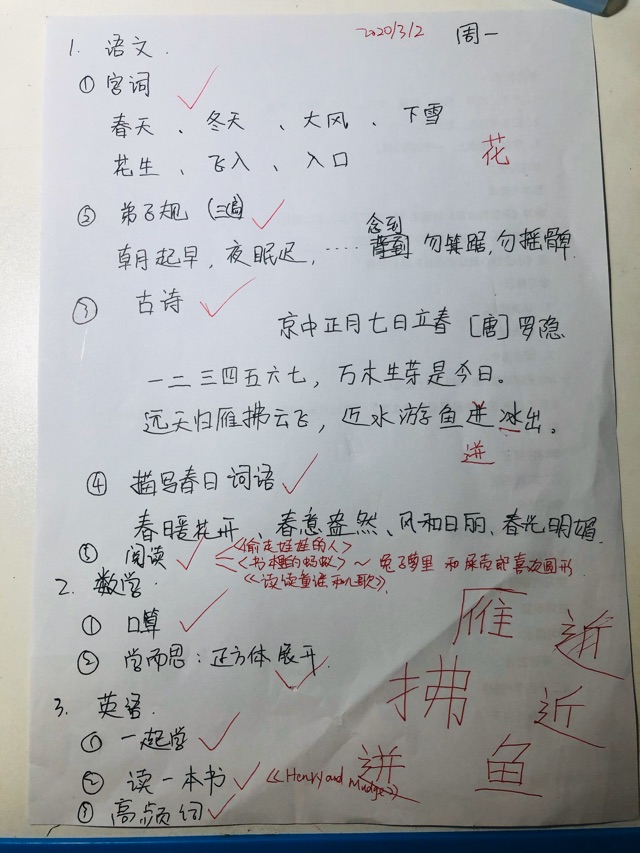 2020/3/2 周一
1. 语文.
① 字词
春天、冬天、大风、下雪
花生、飞入、入口
花
② 弟子规 (三遍)
念到
朝起早,夜眠迟,……背到 勿箕踞,勿摇髀
③ 古诗
京中正月七日立春 [唐]罗隐
一二三四五六七,万木生芽是今日。
远天归雁拂云飞,近水游鱼迸冰出。
迸
④ 描写春日词语
春暖花开、春意盎然、风和日丽、春光明媚
⑤ 阅读 《偷走娃娃的人》
《书柜的蚂蚁》~兔子萝里 和 屎壳郎喜欢圆形
《读读童谣和儿歌》
2. 数学.
① 口算
② 学而思:正方体展开.
雁 近
拂 近
迸 鱼
3. 英语.
① 一起学
② 读一本书 《Henry and Mudge》
③ 高频词